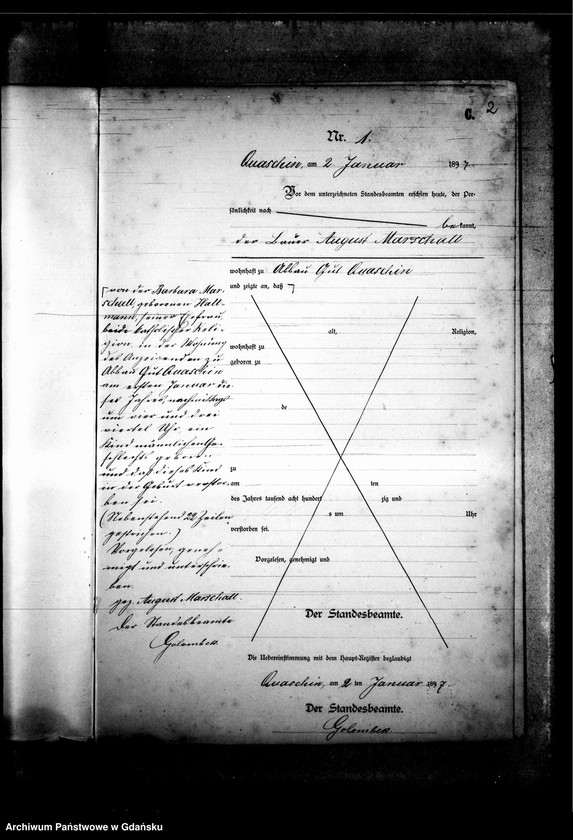 C.
2
Nr. 1.
Quaschin, am 2 Januar 1897.
Vor dem unterzeichneten Standesbeamten erschien heute, der Per-
sönlichkeit nach
bekannt,
der Bauer August Marschall
wohnhaft zu Abbau Gut Quaschin
und zeigte an, daß
von der Barbara Mar-
schall, geborenen Hall-
mann, seiner Ehefrau,
beide katholischer Reli-
gion, in der Wohnung
des Anzeigenden zu
Abbau Gut Quaschin
am ersten Januar die-
ses Jahres, nachmittags
um vier und drei
viertel Uhr ein
Kind männlichen Ge-
schlechts geboren
und daß dieses Kind
in der Geburt verstor-
ben sei.
(Nebenstehend 22 Zeilen
gestrichen.)
Vorgelesen, geneh-
migt und unterschrie-
ben.
gez. August Marschall.
Der Standesbeamte
Golembek
alt, Religion,
wohnhaft zu
geboren zu
de
zu
am ten
des Jahres tausend acht hundert zig und
s um Uhr
verstorben sei.
Vorgelesen, genehmigt und
Der Standesbeamte.
Die Uebereinstimmung mit dem Haupt-Register beglaubigt
Quaschin, am 2 ten Januar 1897.
Der Standesbeamte.
Golembek
Archiwum Państwowe w Gdańsku